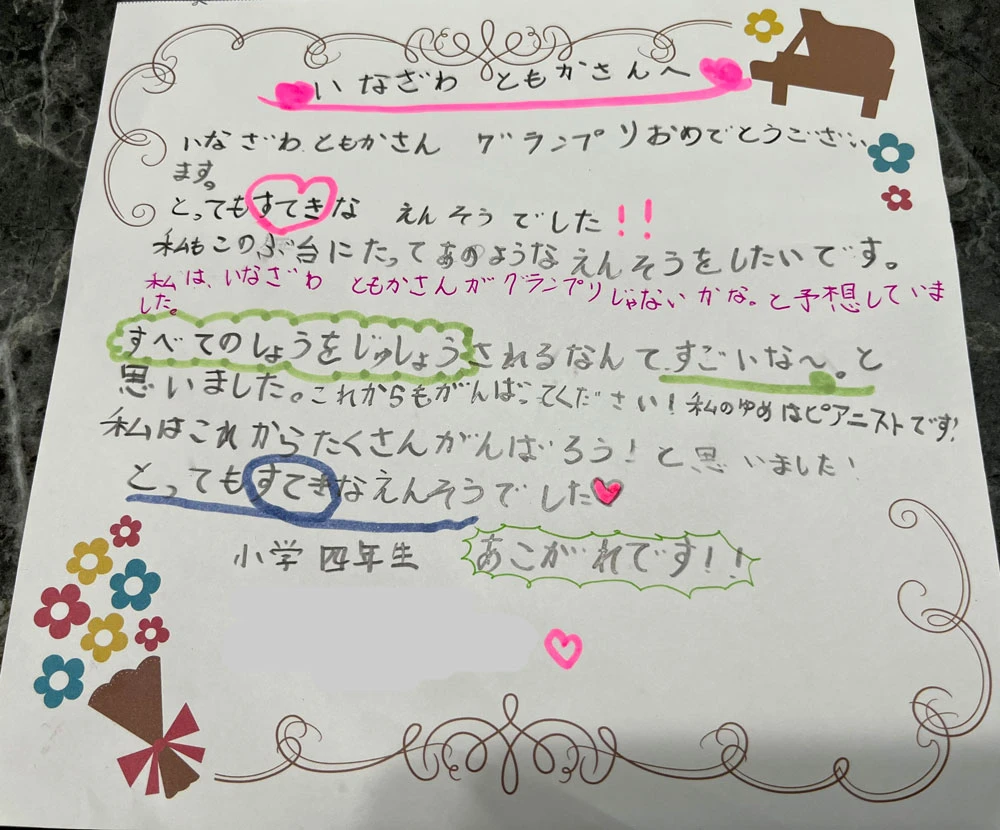 いなざわ ともかさんへ
いなざわ ともかさん グランプリおめでとうござい
ます。
とってもすてきな えんそうでした!!
私もこのぶ台にたってあのようなえんそうをしたいです。
私は、いなざわ ともかさんがグランプリじゃないかな。と予想していま
した。
すべてのしょうをじゅしょうされるなんてすごいな〜。と
思いました。これからもがんばってください!私のゆめはピアニストです!
私はこれからたくさんがんばろう!と思いました!
とってもすてきなえんそうでした
小学四年生 あこがれです!!